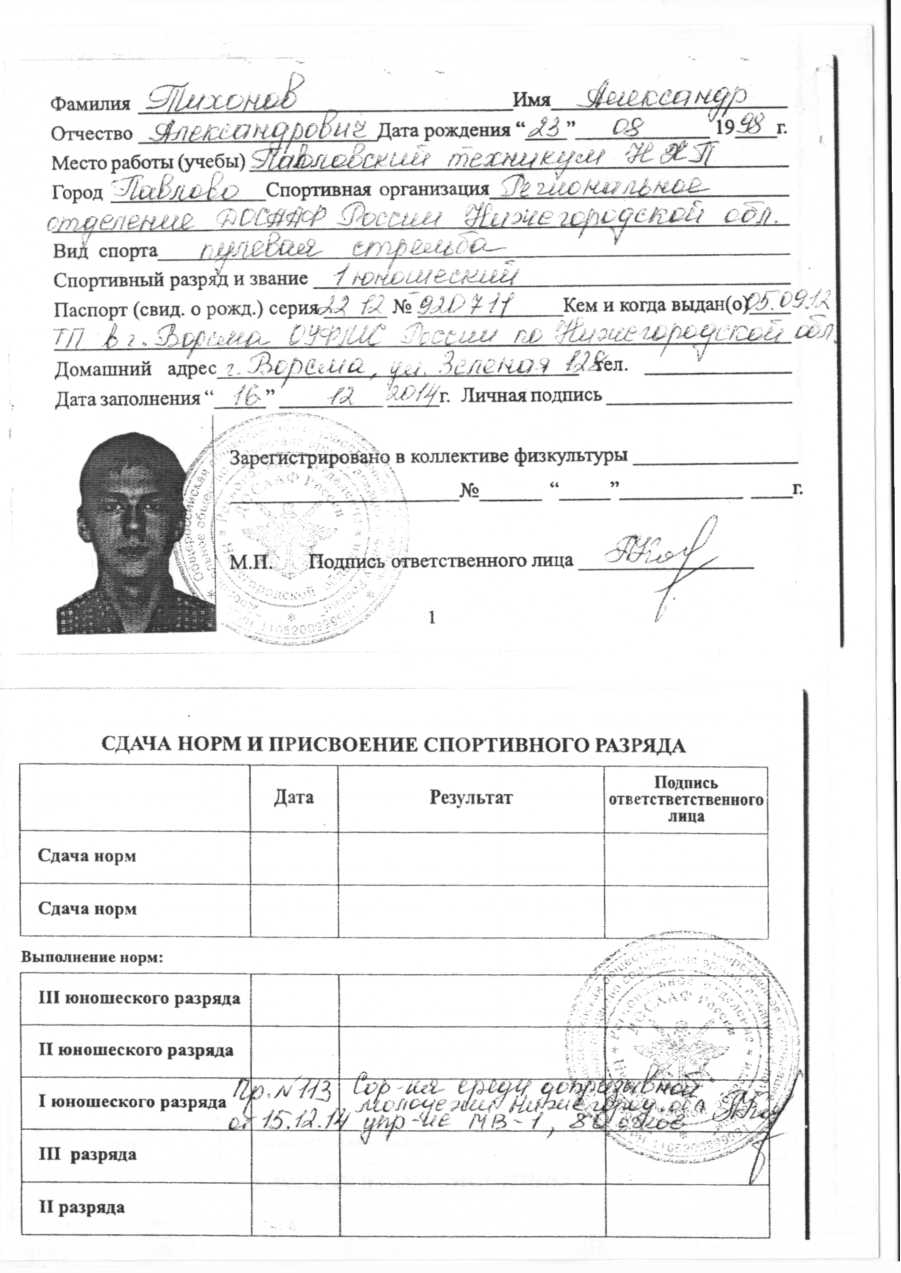 Фамилия Тихонов Имя Александр
Отчество Александрович Дата рождения “23” 08 1998 г.
Место работы (учебы) Павловский техникум НХП
Город Павлово Спортивная организация Региональное
отделение ДОСААФ России Нижегородской обл.
Вид спорта пулевая стрельба
Спортивный разряд и звание 1 юношеский
Паспорт (свид. о рожд.) серия 22 12 № 920711 Кем и когда выдан(о) 05.09.12
ТП в г. Ворсма ОУФМС России по Нижегородской обл.
Домашний адрес г. Ворсма, ул. Зеленая тел.
Дата заполнения “16” 12 2014 г. Личная подпись
Зарегистрировано в коллективе физкультуры
№ “ ” г.
ДОСААФ России
М.П. Подпись ответственного лица
1
СДАЧА НОРМ И ПРИСВОЕНИЕ СПОРТИВНОГО РАЗРЯДА
Дата Результат Подпись
ответстветственного
лица
Сдача норм
Сдача норм
Выполнение норм:
III юношеского разряда
II юношеского разряда
ДОСААФ России
I юношеского разряда Пр. №113 Сор-ия среди допризывной
молодежи Нижегород. обл.
от 15.12.14 упр-ие МВ-1, 80 очков
III разряда
II разряда